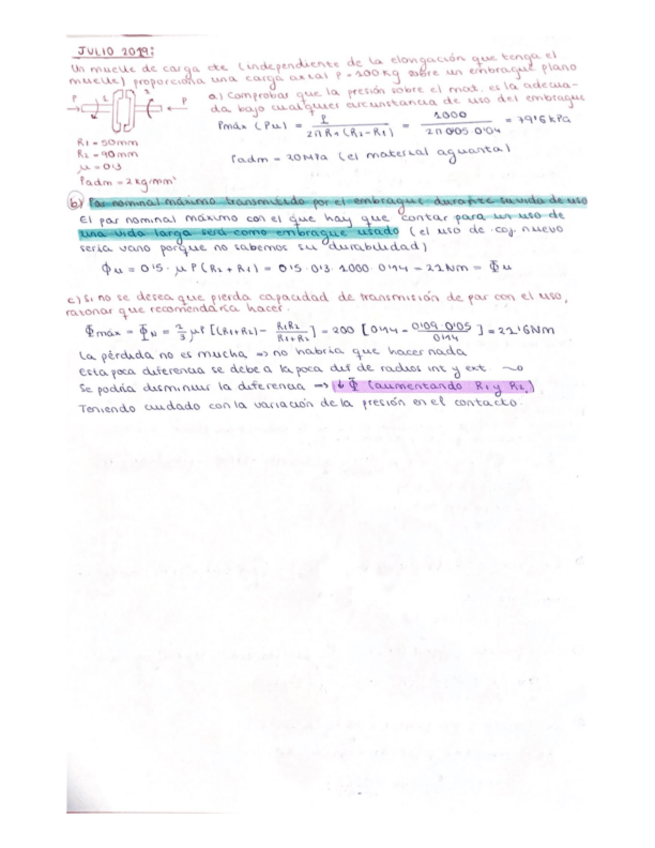 JULIO 2019:
Un muelle de carga cte (independiente de la elongación que tenga el
muelle) proporciona una carga axial P = 100 Kg sobre un embrague plano
a) Comprobar que la presión sobre el mat. es la adecua-
da bajo cualquier circunstancia de uso del embrague
P
P
R1 = 50mm
R2 = 90mm
μ = 0'3
Padm = 2 kg/mm²
Pmáx (Pu) = P / 2π R1 (R2 - R1) = 1000 / 2π 0'05 · 0'04 = 79'6 kPa
Padm = 20MPa (el material aguanta)
b) Par nominal máximo transmitido por el embrague durante su vida de uso
El par nominal máximo con el que hay que contar para un uso de
una vida larga será como embrague usado (el uso de coj. nuevo
sería vano porque no sabemos su durabilidad)
Φu = 0'5 · μ P (R2 + R1) = 0'5 · 0'3 · 1000 · 0'14 = 21Nm = Φu
c) Si no se desea que pierda capacidad de transmisión de par con el uso,
razonar que recomendaría hacer.
Φmáx = ΦN = 2/3 μP [(R1+R2) - R1R2 / R1+R2] = 200 [0'14 - 0'09·0'05 / 0'14] = 21'6Nm
La pérdida no es mucha => no habría que hacer nada
Esta poca diferencia se debe a la poca dif de radios int y ext.
Se podría disminuir la diferencia => ↓ Φ (aumentando R1 y R2)
Teniendo cuidado con la variación de la presión en el contacto.